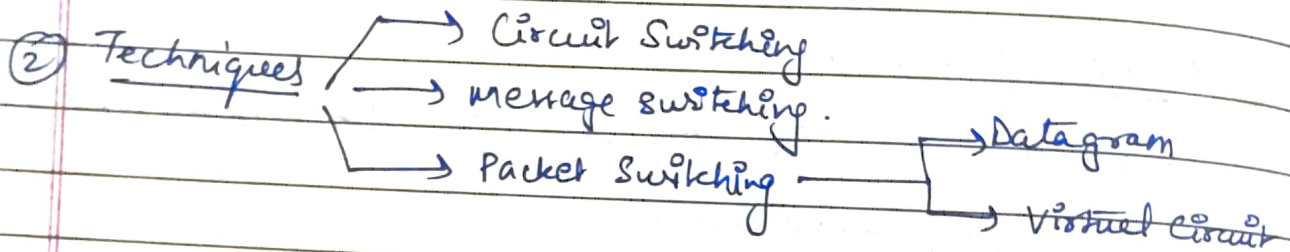 ② Techniques → Circuit Switching
→ message switching.
→ Packet Switching → Datagram
→ Virtual Circuit